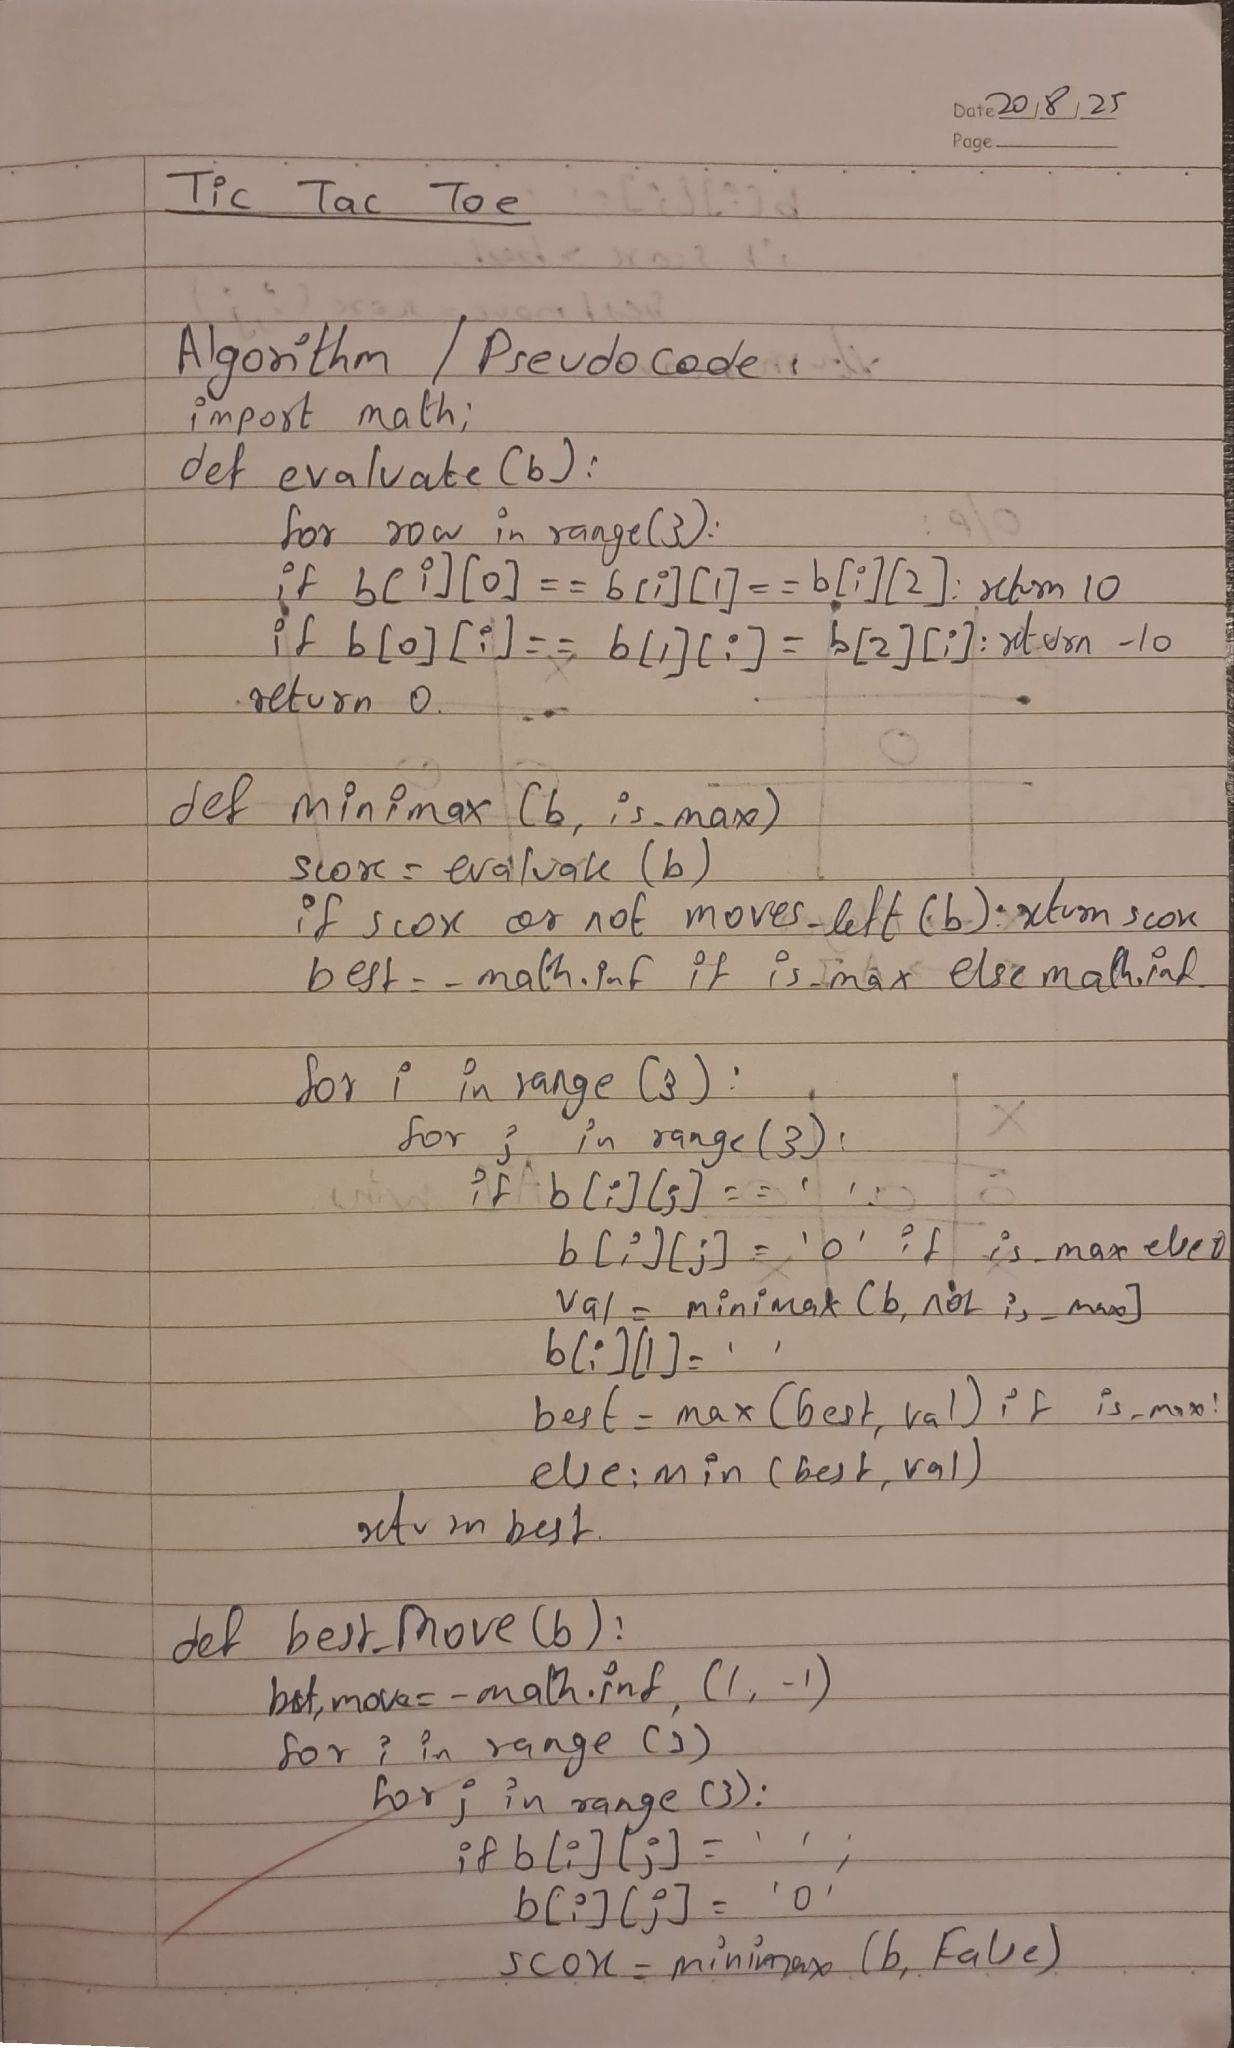 Date 20/8/25
Page
Tic Tac Toe
Algorithm / Pseudocode:
import math;
def evaluate (b):
for row in range(3):
if b[i][0] == b[i][1]==b[i][2]: return 10
if b[0][i]== b[1][i] = b[2][i]: return -10
return 0.
def minimax (b, is_max)
score = evaluate (b)
if score or not moves_left (b): return score
best = - math.inf if is_max else math.inf
for i in range (3):
for j in range (3):
if b[i][j] == ' ':
b[i][j] = 'O' if is_max else O
val = minimax (b, not is_max]
b[i][1] = ' '
best = max (best, val) if is_max:
else: min (best, val)
return best.
def best_Move (b):
bst, move = -math.inf, (1, -1)
for i in range (3)
for j in range (3):
if b[i][j] = ' ';
b[i][j] = 'O'
score = minimax (b, False)